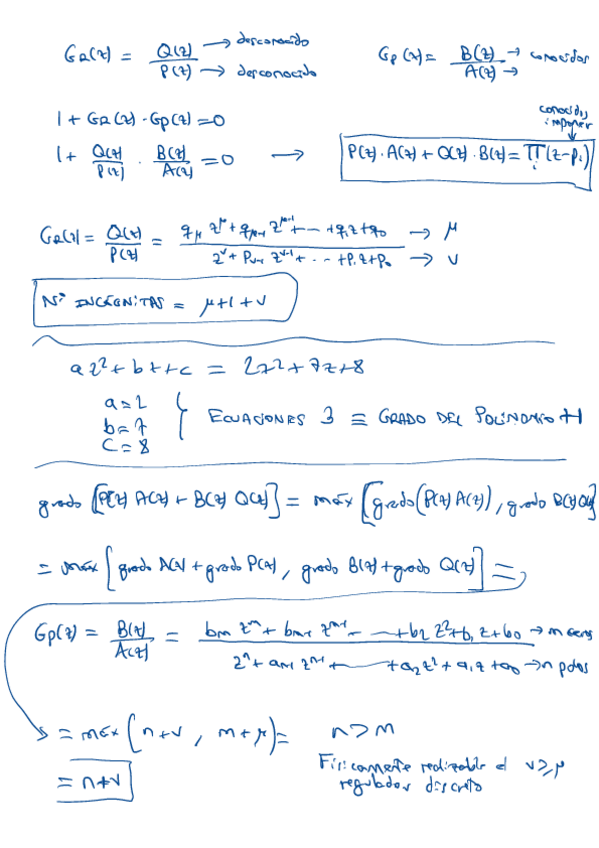 G_R(z) = Q(z)/P(z) → desconocido → desconocido    G_P(z) = B(z)/A(z) → conocidos →
1 + G_R(z) · G_P(z) = 0
conocido, imponer
1 + Q(z)/P(z) · B(z)/A(z) = 0 → P(z) · A(z) + Q(z) · B(z) = ∏_i (z - p_i)
G_R(z) = Q(z)/P(z) = (q_μ z^μ + q_{μ-1} z^{μ-1} + -- + q_1 z + q_0)/(z^ν + p_{ν-1} z^{ν-1} + ... + p_1 z + p_0) → μ → ν
Nº INCÓGNITAS = μ + 1 + ν
a z² + b z + c = 2z² + 7z + 8
a = 2
b = 7 } ECUACIONES 3 ≡ GRADO DEL POLINOMIO + 1
c = 8
grado [P(z) A(z) + B(z) Q(z)] = máx [grado(P(z) A(z)), grado B(z) Q(z)]
= máx [grado A(z) + grado P(z), grado B(z) + grado Q(z)] =
G_P(z) = B(z)/A(z) = (b_m z^m + b_{m-1} z^{m-1} + --- + b_2 z² + b_1 z + b_0)/(z^n + a_{n-1} z^{n-1} + ---- + a_2 z² + a_1 z + a_0) → m ceros → n polos
= máx (n + ν, m + μ) = n > m
= n + ν
Físicamente realizable el ν ≥ μ
regulador discreto